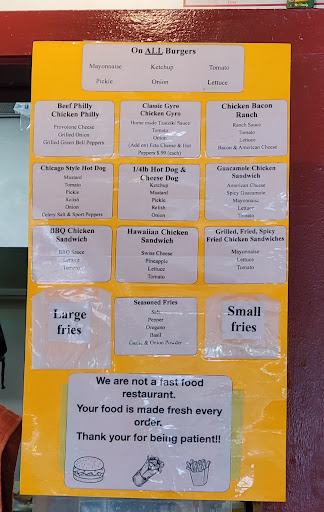 On ALL Burgers
Mayonnaise Ketchup Tomato
Pickle Onion Lettuce
Beef Philly
Chicken Philly
Provolone Cheese
Grilled Onion
Grilled Green Bell Peppers
Classic Gyro
Chicken Gyro
Home made Tzatziki Sauce
Tomato
Onion
(Add on) Feta Cheese & Hot
Peppers $.99 (each)
Chicken Bacon
Ranch
Ranch Sauce
Tomato
Lettuce
Bacon & American Cheese
Chicago Style Hot Dog
Mustard
Tomato
Pickle
Relish
Onion
Celery Salt & Sport Peppers
1/4lb Hot Dog &
Cheese Dog
Ketchup
Mustard
Pickle
Relish
Onion
Guacamole Chicken
Sandwich
American Cheese
Spicy Guacamole
Mayonnaise
Lettuce
Tomato
BBQ Chicken
Sandwich
BBQ Sauce
Lettuce
Tomato
Hawaiian Chicken
Sandwich
Swiss Cheese
Pineapple
Lettuce
Tomato
Grilled, Fried, Spicy
Fried Chicken Sandwiches
Mayonnaise
Lettuce
Tomato
Large
fries
Seasoned Fries
Salt
Pepper
Oregano
Basil
Garlic & Onion Powder
Small
fries
We are not a fast food
restaurant.
Your food is made fresh every
order.
Thank your for being patient!!